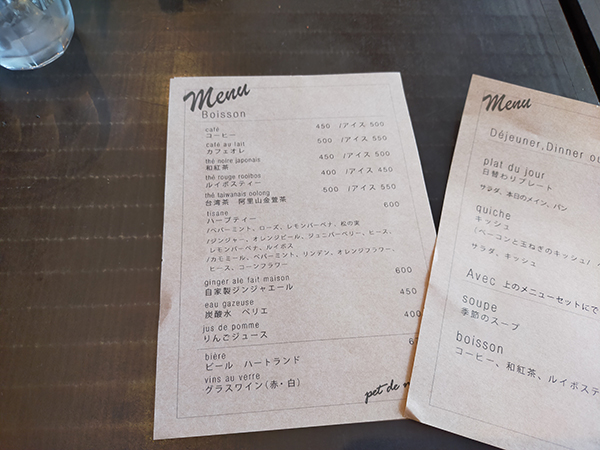 Menu
Boisson
café
コーヒー 450 /アイス 500
café au lait
カフェオレ 500 /アイス 550
thé noire japonais
和紅茶 450 /アイス 500
thé rouge rooibos
ルイボスティー 400 /アイス 450
thé taiwanais oolong
台湾茶 阿里山金萱茶 500 /アイス 550
tisane
ハーブティー 600
/ペパーミント、ローズ、レモンバーベナ、松の実
/ジンジャー、オレンジピール、ジュニパーベリー、ヒース、
レモンバーベナ、ルイボス
/カモミール、ペパーミント、リンデン、オレンジフラワー、
ヒース、コーンフラワー
ginger ale fait maison 600
自家製ジンジャエール
eau gazeuse 450
炭酸水 ペリエ
jus de pomme 400
りんごジュース
bière
ビール ハートランド
vins au verre
グラスワイン(赤・白)
pet de
Menu
Déjeuner,Dinner
plat du jour
日替わりプレート
サラダ、本日のメイン、パン
quiche
キッシュ
(ベーコンと玉ねぎのキッシュ)
サラダ、キッシュ
Avec 上のメニューセットにで
soupe
季節のスープ
boisson
コーヒー、和紅茶、ルイボステ